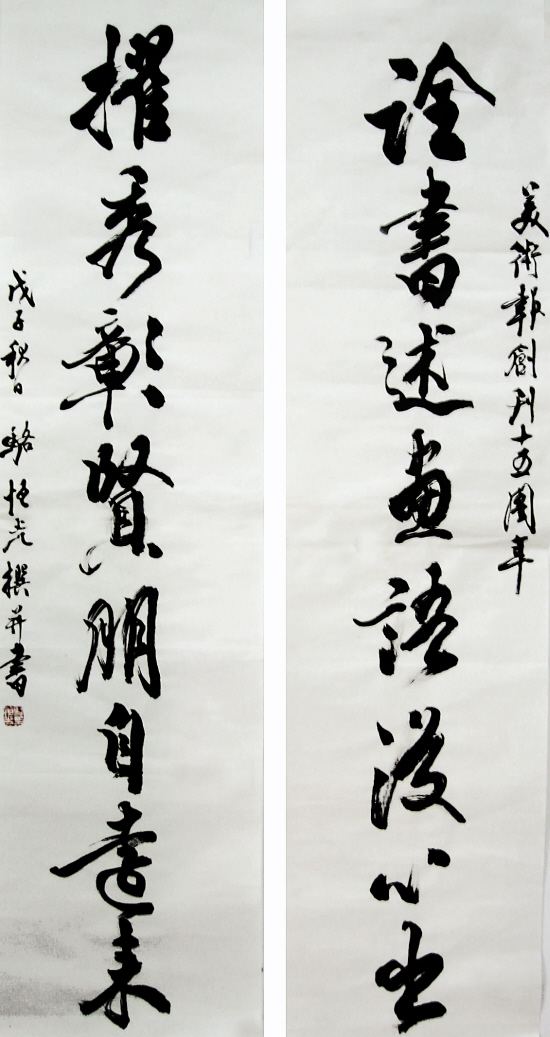 美術報創刊十五周年
詮書述畫語從心出
擢秀彰賢朋自遠來
戊子秋日 駱恒光撰并書